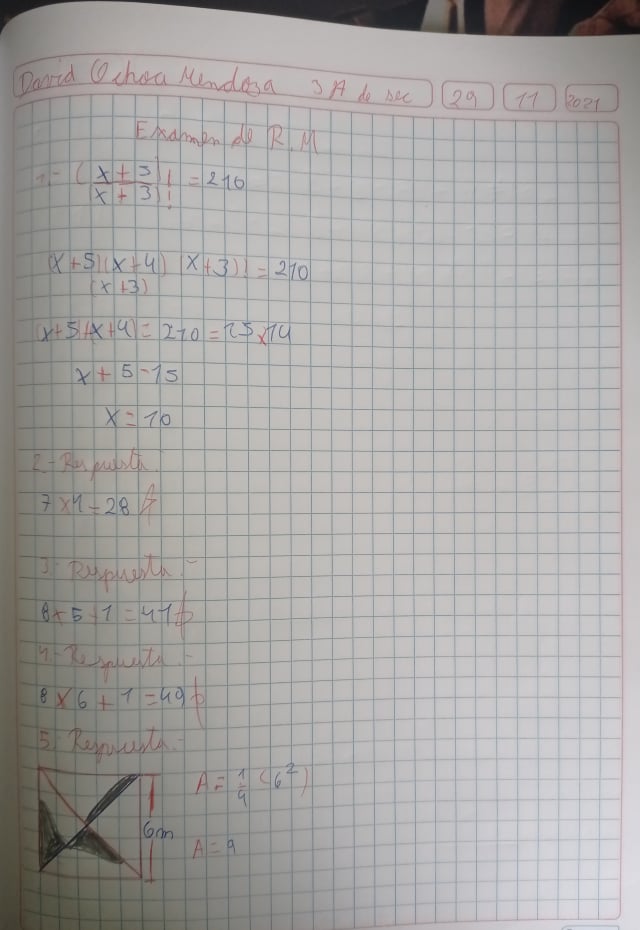 David Ochoa Mendoza 3A de sec 29 11 2021
Examen de R.M
1.- (x+5)! = 210
(x+3)!
(x+5)(x+4) (x+3)! = 210
(x+3)
(x+5)(x+4) = 210 = 15x14
x + 5 = 15
x = 10
2.- Respuesta.-
7x4=28
3.- Respuesta.-
8x5+1=41
4.- Respuesta.-
8x6+1=49
5. Respuesta.-
A = 1/4 (6²)
6m
A = 9